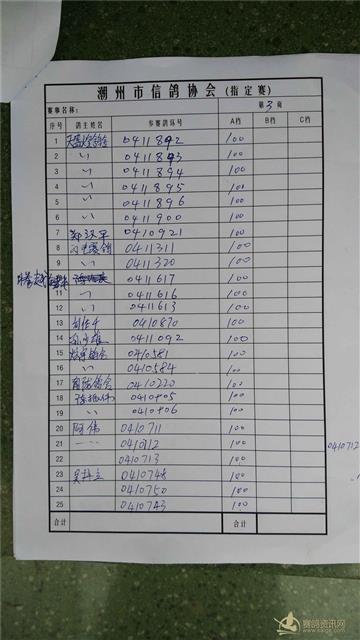 潮州市信鸽协会(指定赛)
赛事名称: 第3页
序号 鸽主姓名 参赛鸽环号 A档 B档 C档
1 0411892 100
2 〃 0411893 100
3 〃 0411894 100
4 〃 0411895 100
5 〃 0411896 100
6 〃 0411900 100
7 郑汉平 0410921 100
8 0411311 100
9 〃 0411320 100
0411617 100
11 〃 0411616 100
12 〃 0411613 100
13 0410870 100
14 0411092 100
15 0410581 100
16 〃 0410584 100
17 0410220 100
18 陈振伟 0410805 100
19 〃 0410806 100
20 阿伟 0410711 100
21 0410112 100 0410712
22 0410713 100
23 0410748 100
24 0410750 100
25 0410743 100
合计 合计
赛鸽资讯网
www.saige.com